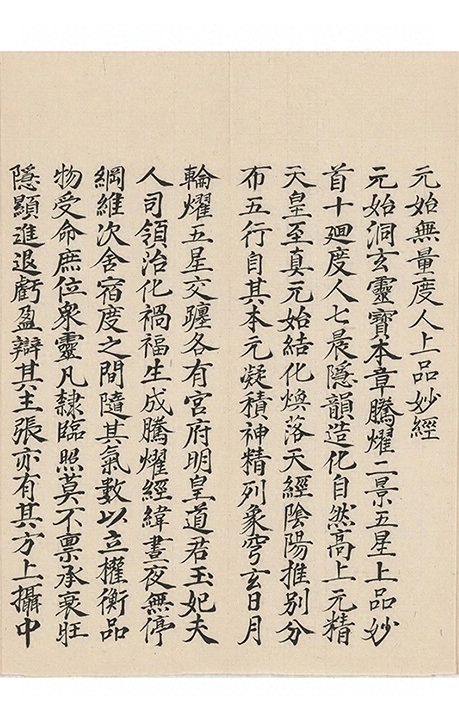 元始無量度人上品妙經
元始洞玄靈寶本章騰耀二景五星上品妙
首十廻度人七晨隱韻造化自然高上元精
天皇至真元始結化煥落天經陰陽推別分
布五行自其本元凝積神精列象穹玄日月
輪燿五星交躔各有宮府明皇道君玉妃夫
人司領治化禍福生成騰燿經緯晝夜無停
綱維次舍宿度之間隨其氣數以立權衡品
物受命庶位衆靈凡隸臨照莫不禀承衰旺
隱顯進退虧盈辯其主張亦有其方上攝中